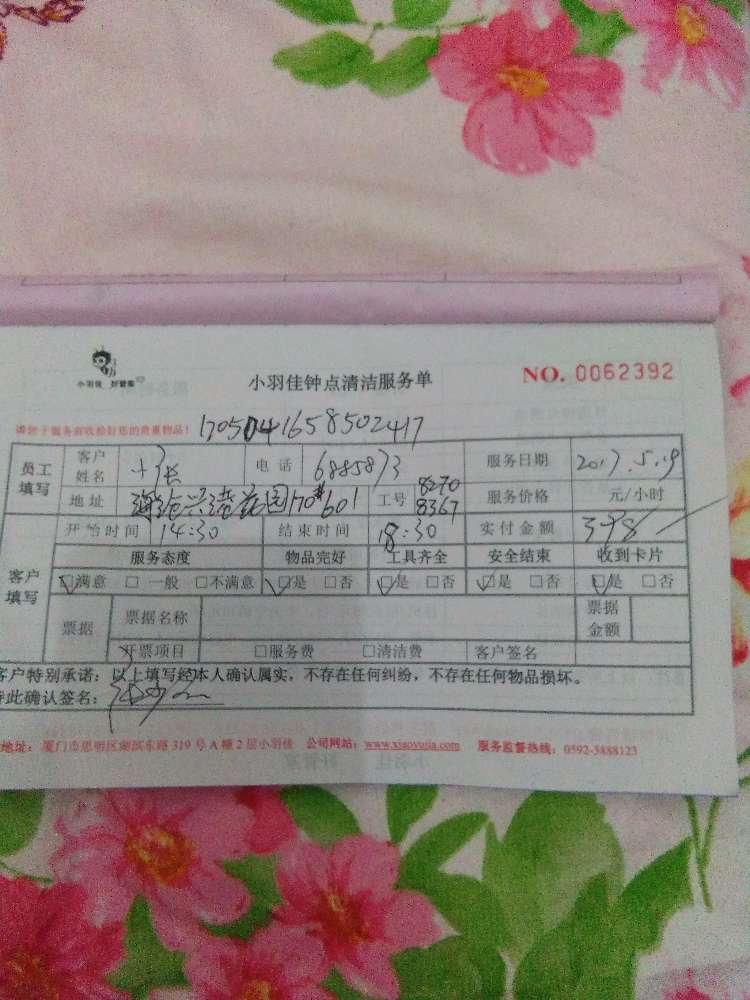 小羽佳 好管家
小羽佳钟点清洁服务单
NO. 0062392
请您于服务前收拾好您的贵重物品！
1705041658502417
员工填写 客户姓名 小张 电话 6885873 服务日期 2017.5.19
地址 海沧兴港花园170#601 工号 8270 8367 服务价格 元/小时
开始时间 14:30 结束时间 18:30 实付金额 398
客户填写 服务态度 物品完好 工具齐全 安全结束 收到卡片
☑满意 □一般 □不满意 ☑是 □否 ☑是 □否 ☑是 □否 ☑是 □否
票据 票据名称 票据金额
开票项目 □服务费 □清洁费 客户签名
客户特别承诺：以上填写经本人确认属实，不存在任何纠纷，不存在任何物品损坏。
特此确认签名：
地址：厦门市思明区湖滨东路319号A幢2层小羽佳 公司网站：www.xiaoyujia.com 服务监督热线：0592-5888123